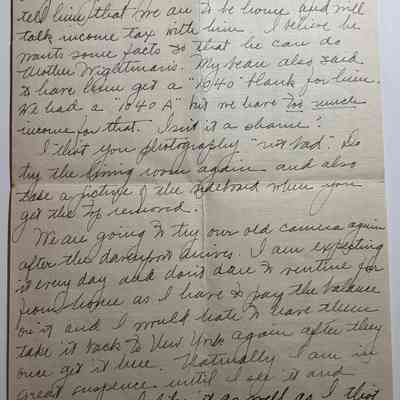 tell him that we are to be home and will
talk income tax with him. I believe he
wants some facts so that he can do
Mother Wightman's. My beau also said
to have him get a "1040" blank for him.
We had a "1040 A" but we have too much
income for that. Isn't it a shame".
I thot your photography "not bad". Do
try the living room again and also
take a picture of the sideboard when you
get the top removed.
We are going to try our old camera again
after the davenport arrives. I am expecting
it every day and don't dare to venture far
from home as I have to pay the balance
on it and I would hate to have them
take it back to New York again after they
once get it here. Naturally I am in
great suspense until I see it and
it as well as I thot